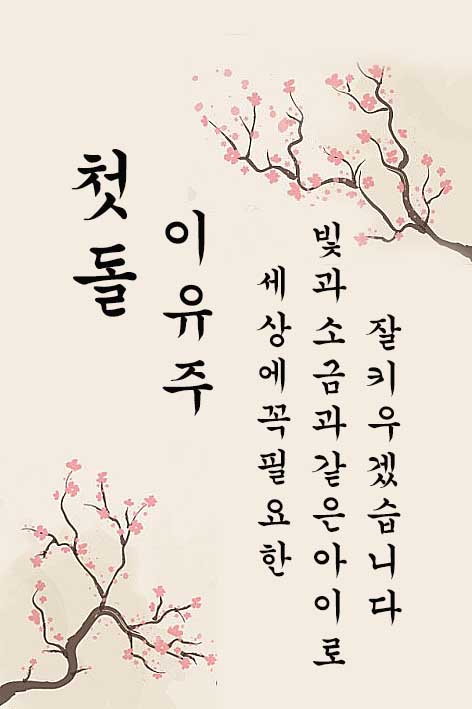 첫돌
이유주
세상에꼭필요한
빛과소금과같은아이로
잘키우겠습니다